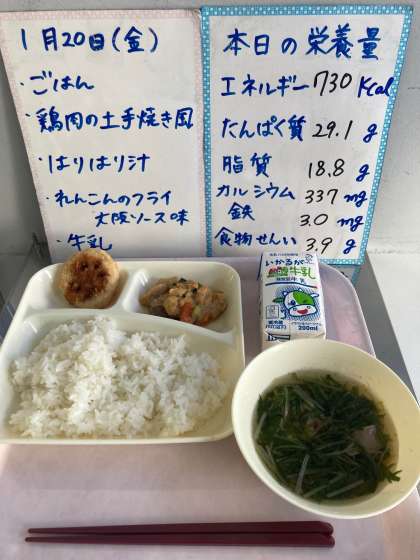 1月20日(金)
・ごはん
・鶏肉の土手焼き風
・はりはり汁
・れんこんのフライ
大阪ソース味
・牛乳
本日の栄養量
エネルギー730Kcal
たんぱく質 29.1 g
脂質 18.8 g
カルシウム 337 mg
鉄 3.0 mg
食物せんい 3.9 g
いかるが
牛乳
200ml